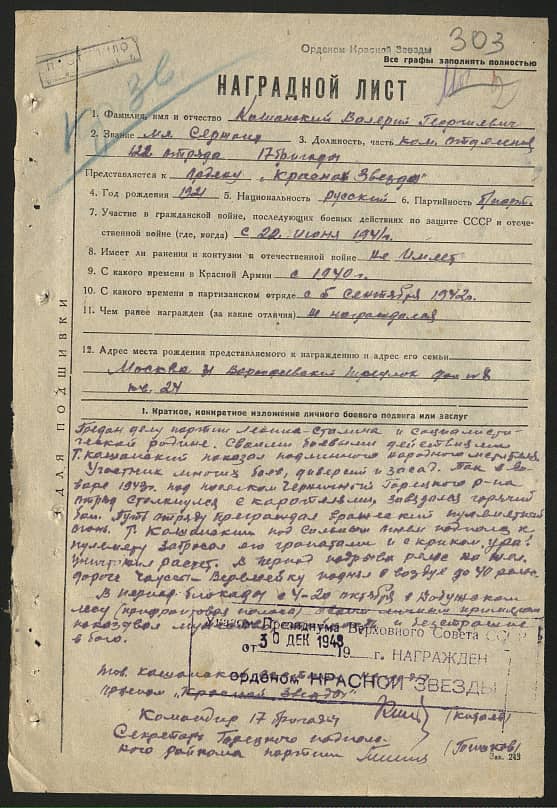 Орденом Красной Звезды
303
Все графы заполнять полностью
НАГРАДНОЙ ЛИСТ
1. Фамилия, имя и отчество Кашанский Валерий Георгиевич
2. Звание мл Сержант 3. Должность, часть ком. отделения
122 отряда 17 бригады
Представляется к ордену "Красная Звезда"
4. Год рождения 1921 5. Национальность русский 6. Партийность
7. Участие в гражданской войне, последующих боевых действиях по защите СССР и отече-
ственной войне (где, когда) с 22 июня 1941г.
8. Имеет ли ранения и контузии в отечественной войне не имеет
9. С какого времени в Красной Армии с 1940г.
10. С какого времени в партизанском отряде с 5 Сентября 1942г.
11. Чем ранее награжден (за какие отличия) н награждался
12. Адрес места рождения представляемого к награждению и адрес его семьи
Москва дом №8
кв. 24
ДЛЯ ПОДШИВКИ
1. Краткое, конкретное изложение личного боевого подвига или заслуг
Предан делу партии Ленина-Сталина и социалисти-
ческой родине. Своими боевыми действиями
Т. Кашанский показал подлинного народного мстителя
Участник многих боев, диверсий и засад. Так в
1943г. под поселком Горецкого р-на
отряд столкнулся с карателями, завязался горячий
бой. Путь отряду преграждал вражеский пулеметный
огонь. Т. Кашанский под сильным огнем подполз к
пулемету забросал его гранатами и с криком, ура!
уничтожил расчет. В период подрыва рельс на жел.
дороге поднял в воздух до 40 рельс.
В период блокады с 4-20 октября в
лесу (прифронтовая полоса) своим личным примером
показывал и бесстрашие
в бою.
Указом Президиума Верховного Совета СССР
от 30 ДЕК 1948 19 г. НАГРАЖДЕН
орденом КРАСНОЙ ЗВЕЗДЫ
Тов. Кашанский
орденом "Красной Звезды"
Командир 17 бригады
Секретарь Горецкого подполь-
ного райкома партии
Зак. 249